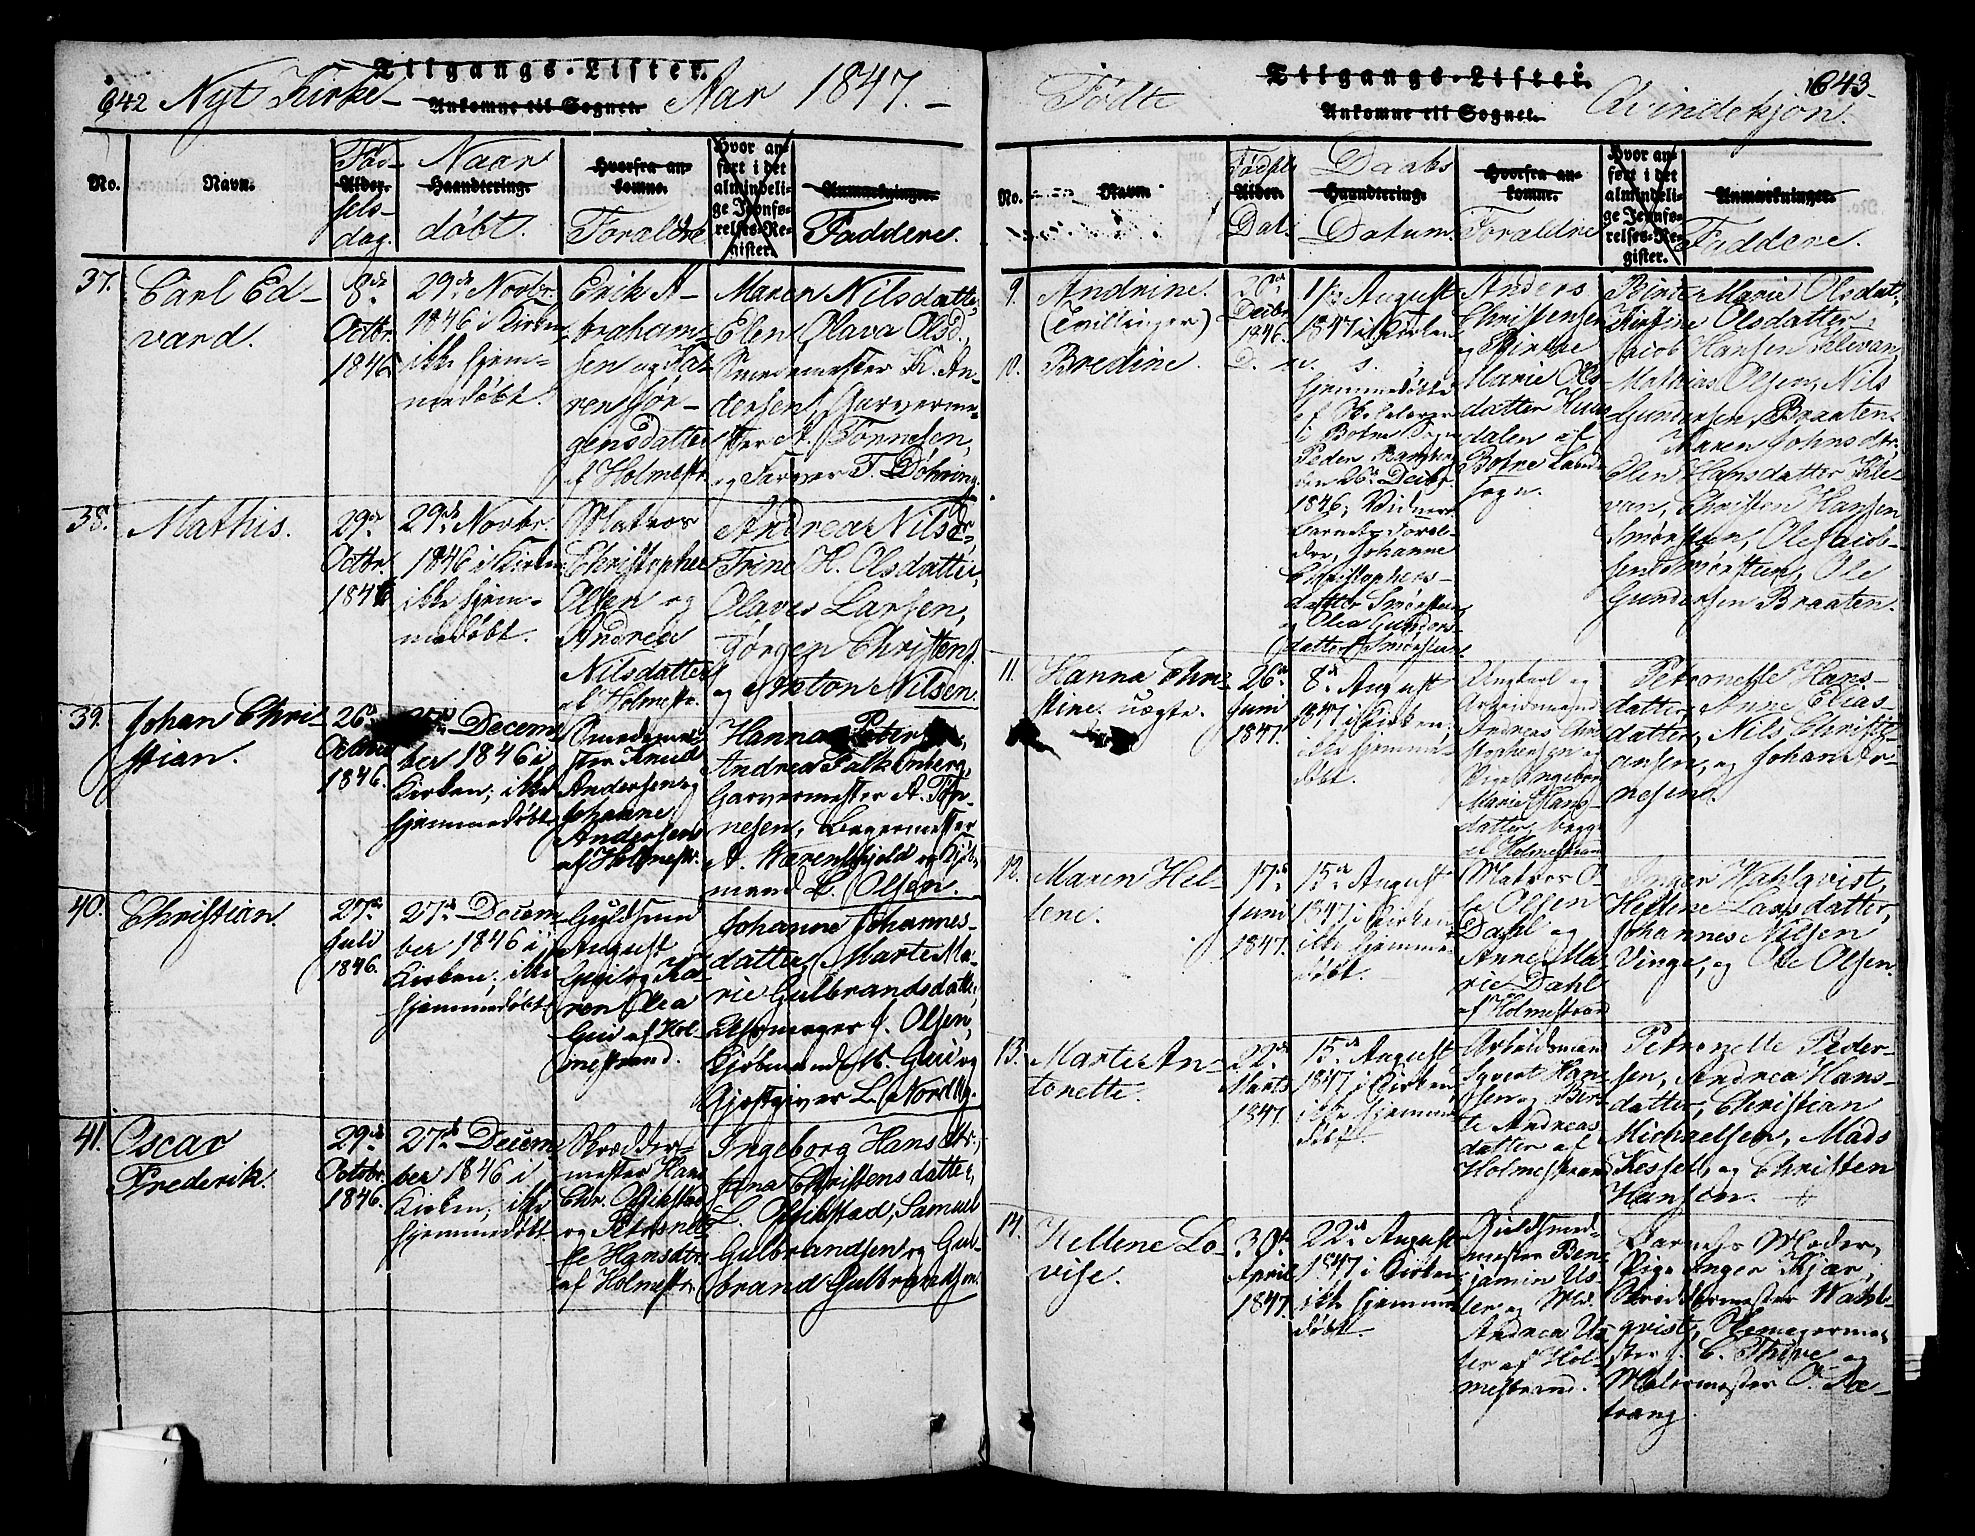 642 Nyt Kirke- Tilgangs-Lister. Aar 1847.-
Ankomne til Sognet.
No.
Navn.
Fød-
Alder.
sels-
dag.
Naar
Haandtering.
døbt.
Hvorfra an-
komne.
Forældre
Hvor an-
ført i det
almindeli-
ge Jevnfø-
relses-Re-
gister.
Anmærkninger.
Faddere.
37.
Carl Ed-
vard.
8de
Octbr.
1846
29de Novbr.
1846 i Kirken
ikke hjem-
medøbt.
Erik A-
braham-
sen og Ka-
ren Jør-
gensdatter
af Holmestr.
Maren Nilsdatter,
Elen Olava Olsd.,
Smedemester K. An-
dersen, Garverme-
ster A. Tønnesen,
og Farver T. Døhring.
38.
Mathis.
29de
Octbr.
1846
29de Novbr.
1846 i Kirken
ikke hjem-
medøbt.
Matros
Christopher
Olsen og
Andrea
Nilsdatter
af Holmestr.
Andrea Nilsdr,
Trine H. Olsdatter,
Olaves Larsen,
Jørgen Christens.
og Anton Nilsen.
39.
Johan Chri-
stian.
26de
Octbr.
1846.
27de Decem-
ber 1846 i
Kirken; ikke
hjemmedøbt
Smedeme-
ster Knud
Andersen og
Johanne
Andersen
af Holmestr.
Hanna Peter
Andrea Falkenberg,
Garvermester A. Tøn-
nesen, Bagermester
A. Warenskjold og Kjøb-
mand L. Olsen.
40.
Christian.
27de
Juli
1846.
27de Decem-
ber 1846 i
Kirken; ikke
hjemmedøbt
Guldsmed
August
og Ka-
ren Olea
af Hol-
mestrand.
Johanne Johannes-
datter, Marte Ma-
rie Gulbrandsdatter,
Uhrmager J. Olsen,
Kjøbmand M. og
Gjestgiver L. Nordby.
41.
Oscar
Frederik.
29de
Octbr.
1846.
27de Decem-
ber 1846 i
Kirken; ikke
hjemmedøbt
Skrædder-
mester Hans
Chr.
og
Hansdtr
af Holmestr.
Ingeborg Hansdtr.,
Christensdatter,
L. Samuel
Gulbrandsen og Gul-
brand Gulbrandsen.
Fødte Tilgangs-Lister. Qvindekjøn. 643
Ankomne til Sognet.
No.
Navn
Fødsels
Alder.
Dat.
Daabs
Haandtering.
Datum.
Hvorfra an-
komne.
Forældre
Hvor an-
ført i det
almindeli-
ge Jevnfø-
relses-Re-
gister.
Anmærkninger.
Faddere.
9.
Andrine.
(Tvillinger)
Decbr
1846.
1ste August
1847 i Kirken
Anders
Christensen
og Birthe
Marie Ols-
datter
dalen af
Botne Lands
sogn.
Birte Marie Olsdat.,
Kirstine Olsdatter,
Jacob Hansen Klevan,
Mathias Olsen, Nils
Gundersen Braaten.
10.
Bredine.
D.
s.
hjemmedøbte
af Skolelærer
i Botne Sogn
Peder
den 26. Decbr.
1846; Vidner
Barnets Foræl-
dre, Johanne
Christophers-
datter Smørsteen
og Olea Gunders-
datter Smørsteen
Maren Johnsdtr.
Elen Hansdatter Kle-
van, Christen Hansen
Smørsteen, Ole Jacob-
sen Smørsteen, Ole
Gundersen Braaten.
11.
Hanna Chri-
stine. uægte.
26de
Juni
1847.
8de August
1847 i Kirken;
ikke hjemme
døbt.
Ungkarl og
Arbeidsmand
Andreas Chri-
stophersen og
Pige Ingebor
Marie Hans-
datter, begge
af Holmestrand
Petronette Hans-
datter, Anne Elias-
datter, Nils Christi-
ansen, og Johan Ar-
nesen.
12.
Maren Hel-
lene.
17de
Juni
1847.
15de August
1847 i Kirken
ikke hjemme
døbt.
Matros O-
le Olsen
Dahl og
Anne Ma-
rie Dahl
af Holmestrand
Inger Wahlqvist,
Hellene Larsdatter,
Johannes Nilsen
Vinge, og Ole Olsen.
13.
Marte An-
tonette.
22de
Marts
1847.
15de August
1847 i Kirken
ikke hjemme
døbt.
Arbeidsmand
Sivert Han-
sen og Bir-
te Andreas-
datter af
Holmestrand
Petronette Peder-
sen, Andrea Hans-
datter, Christian
Michaelsen, Mads
Kessel, og Christen
Hansen.
14.
Hellene Lo-
vise.
30te
April
1847.
22de August
1847 i Kirken
ikke hjemme
døbt.
Guldsmed-
mester Ben-
jamin Us-
ler og Md.
Andrea Us-
ler af Hol-
mestrand.
Barnets Moder,
Pige Inger Kjær,
Skræddermester Wahl-
qvist,
ster J. C. Thive og
Malermester O. Sæ-
trang.